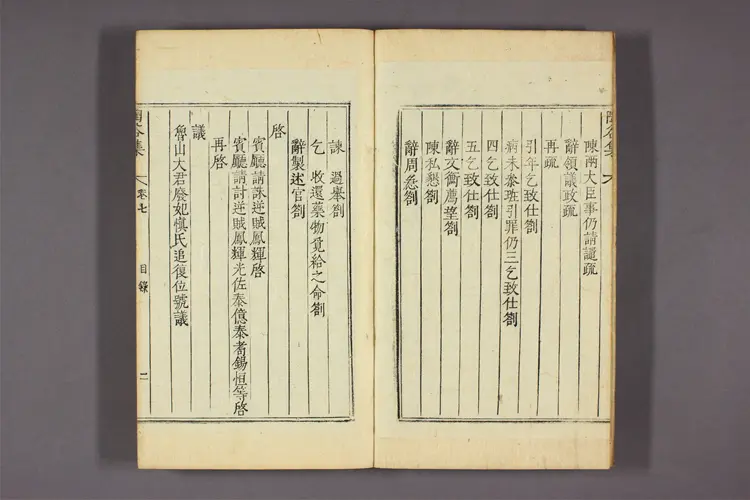 陶谷集
陳兩大臣事仍請譴疏
辭領議政疏
再疏
引年乞致仕劄
病未參班引罪仍三乞致仕劄
四乞致仕劄
五乞致仕劄
辭文衡薦望劄
陳私懇劄
辭周急劄
諫 過擧劄
乞 收還藥物覓給之命劄
辭製述官劄
啓
賓廳請誅逆賊鳳輝啓
賓廳請討逆賊鳳輝光佐泰億泰耉錫恒等啓
再啓
議
魯山大君廢妃愼氏追復位號議
陶谷集 卷七 目錄 二